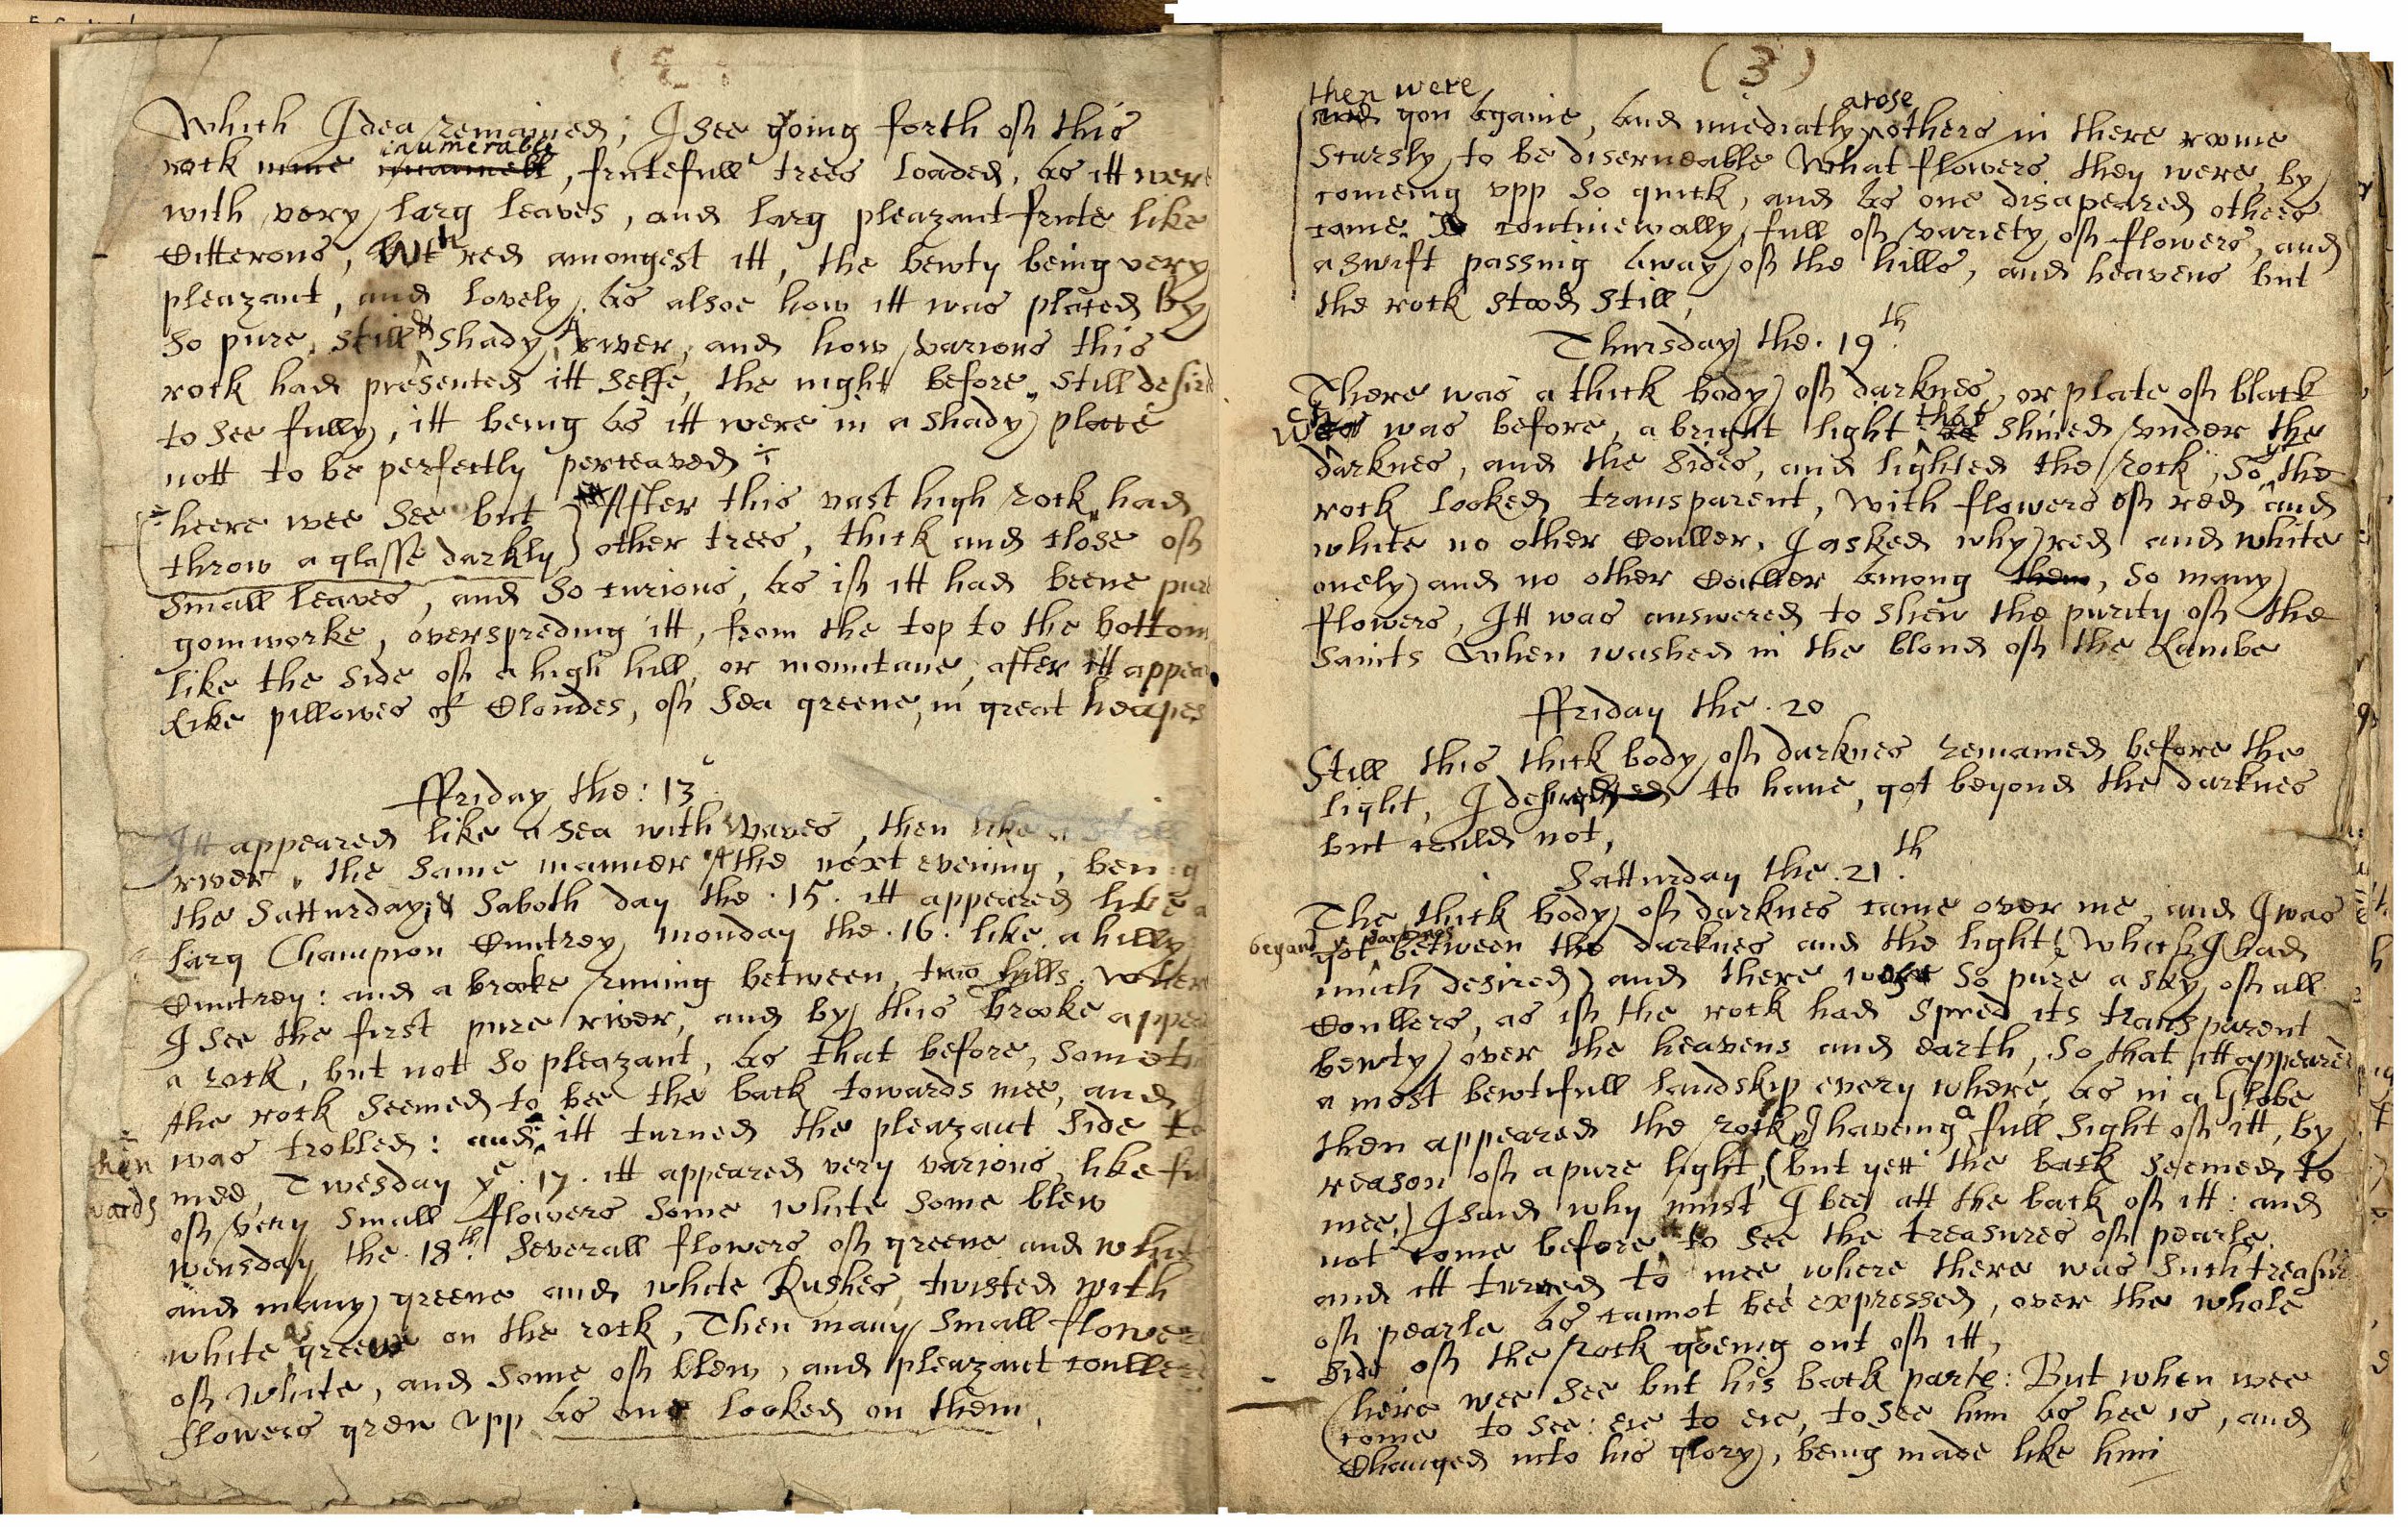 Which Idea remained; I see going forth of this
inumerable
rock , frutefull trees loaded, as itt were
with very larg leaves, and larg pleazant frute like
Citterons, wth red amongest itt, the bewty being very
pleazant, and lovely, as alsoe how itt was placed by
so pure, still & shady, A river, and how various this
rock had presented itt selfe, the night before, still desir
to see fully, itt being as itt were in a shady place
nott to be perfectly perceaved ÷
÷ heere wee see but ) After this vast high rock, had
throw a glasse darkly ) other trees, thick and close of
small leaves, and so curious, as if itt had beene pure
gomworke, overspreding itt, from the top to the bottom
like the side of a high hill, or mountane, after itt appea
like pillowes of Cloudes, of sea greene, in great heapes
ffriday the: 13
Itt appeared like a sea with waves, then like a still
river, the same manner the next evening, being
the Satturday; & Saboth day the .15. itt appeared like a
larg Champion Cuntrey, monday the .16. like a hilly
Cuntrey: and a brooke runing between two hills, wher
I see the first pure river, and by this brooke appea
a rock, but not so pleazant, as that before, someti
the rock seemed to bee the back towards mee, and I
was trobled: and itt turned the pleazant side to
then
wards
mee, Twesday ye .17. itt appeared very various, like fu
of very small flowers some white some blew
wensday the .18th. Severall flowers of greene and whit
and many greene and white Rushes, twisted with
white as greene on the rock, Then many small flower
of white, and some of blew, and pleazant coullerd
flowers grew vpp as one looked on them,
(3)
then were
gon againe, and imediatly arose others in there roome
scarsly to be diserneable what flowers they were, by
comeing vpp so quick, and as one disapeared others
came. continewally, full of variety of flowers, and
a swift passing away of the hills, and heavens but
the rock stood still,
Thursday the .19th.
There was a thick body of darknes, or place of black
wch was before, a bright light that shined vnder the
darknes, and the sides, and lighted the rock, so yt the
rock looked transparent, with flowers of red and
white no other Couller, I asked why red and white
onely and no other Couller among them, so many
flowers, Itt was answered to shew the purity of the
Saints when washed in the bloud of the Lambe
ffriday the .20
Still this thick body of darknes remained before the
light, I desired to haue, got beyond the darknes
but could not,
Satturday the .21th.
The thick body of darknes came over me, and I was
began ye darknes
got between the darknes and the light (which I had
much desired) and there was so pure a sky of all
Coullers, as if the rock had spred its transparent
bewty over the heavens and earth, so that itt appeared
a most bewtifull landskip every where, as in a Globe
then appeared the rock, I haveing a full sight of itt, by
reason of a pure light, (but yett the back seemed to
mee) I said why must I bee att the back of itt: and
not come before, to see the treasures of pearle,
and itt turned to mee where there was such treasur
of pearle as cannot bee expressed, over the whole
side of the rock goeing out of itt,
(heire wee see but his back parte: But when wee
come to see: eie to eie, to see him as hee is, and
Changed into his glory, being made like him